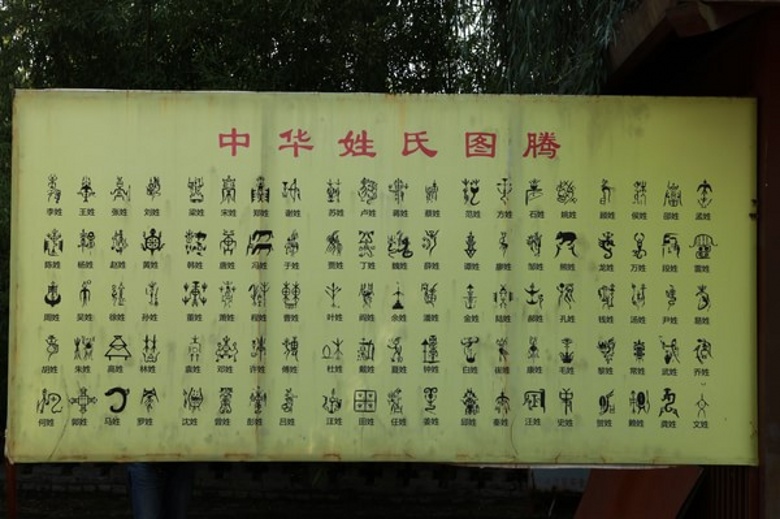 中华姓氏图腾
李姓 王姓 张姓 刘姓 梁姓 宋姓 郑姓 谢姓 苏姓 卢姓 蒋姓 蔡姓 范姓 方姓 石姓 姚姓 顾姓 侯姓 邵姓 孟姓
陈姓 杨姓 赵姓 黄姓 韩姓 唐姓 冯姓 于姓 贾姓 丁姓 魏姓 薛姓 谭姓 廖姓 邹姓 熊姓 龙姓 万姓 段姓 雷姓
周姓 吴姓 徐姓 孙姓 董姓 萧姓 程姓 曹姓 叶姓 阎姓 余姓 潘姓 金姓 陆姓 郝姓 孔姓 钱姓 汤姓 尹姓
胡姓 朱姓 高姓 林姓 袁姓 邓姓 许姓 傅姓 杜姓 戴姓 夏姓 钟姓 白姓 崔姓 康姓 毛姓 黎姓 常姓 武姓 乔姓
何姓 郭姓 马姓 罗姓 沈姓 曾姓 彭姓 吕姓 田姓 任姓 姜姓 邱姓 秦姓 汪姓 史姓 贺姓 赖姓 龚姓 文姓